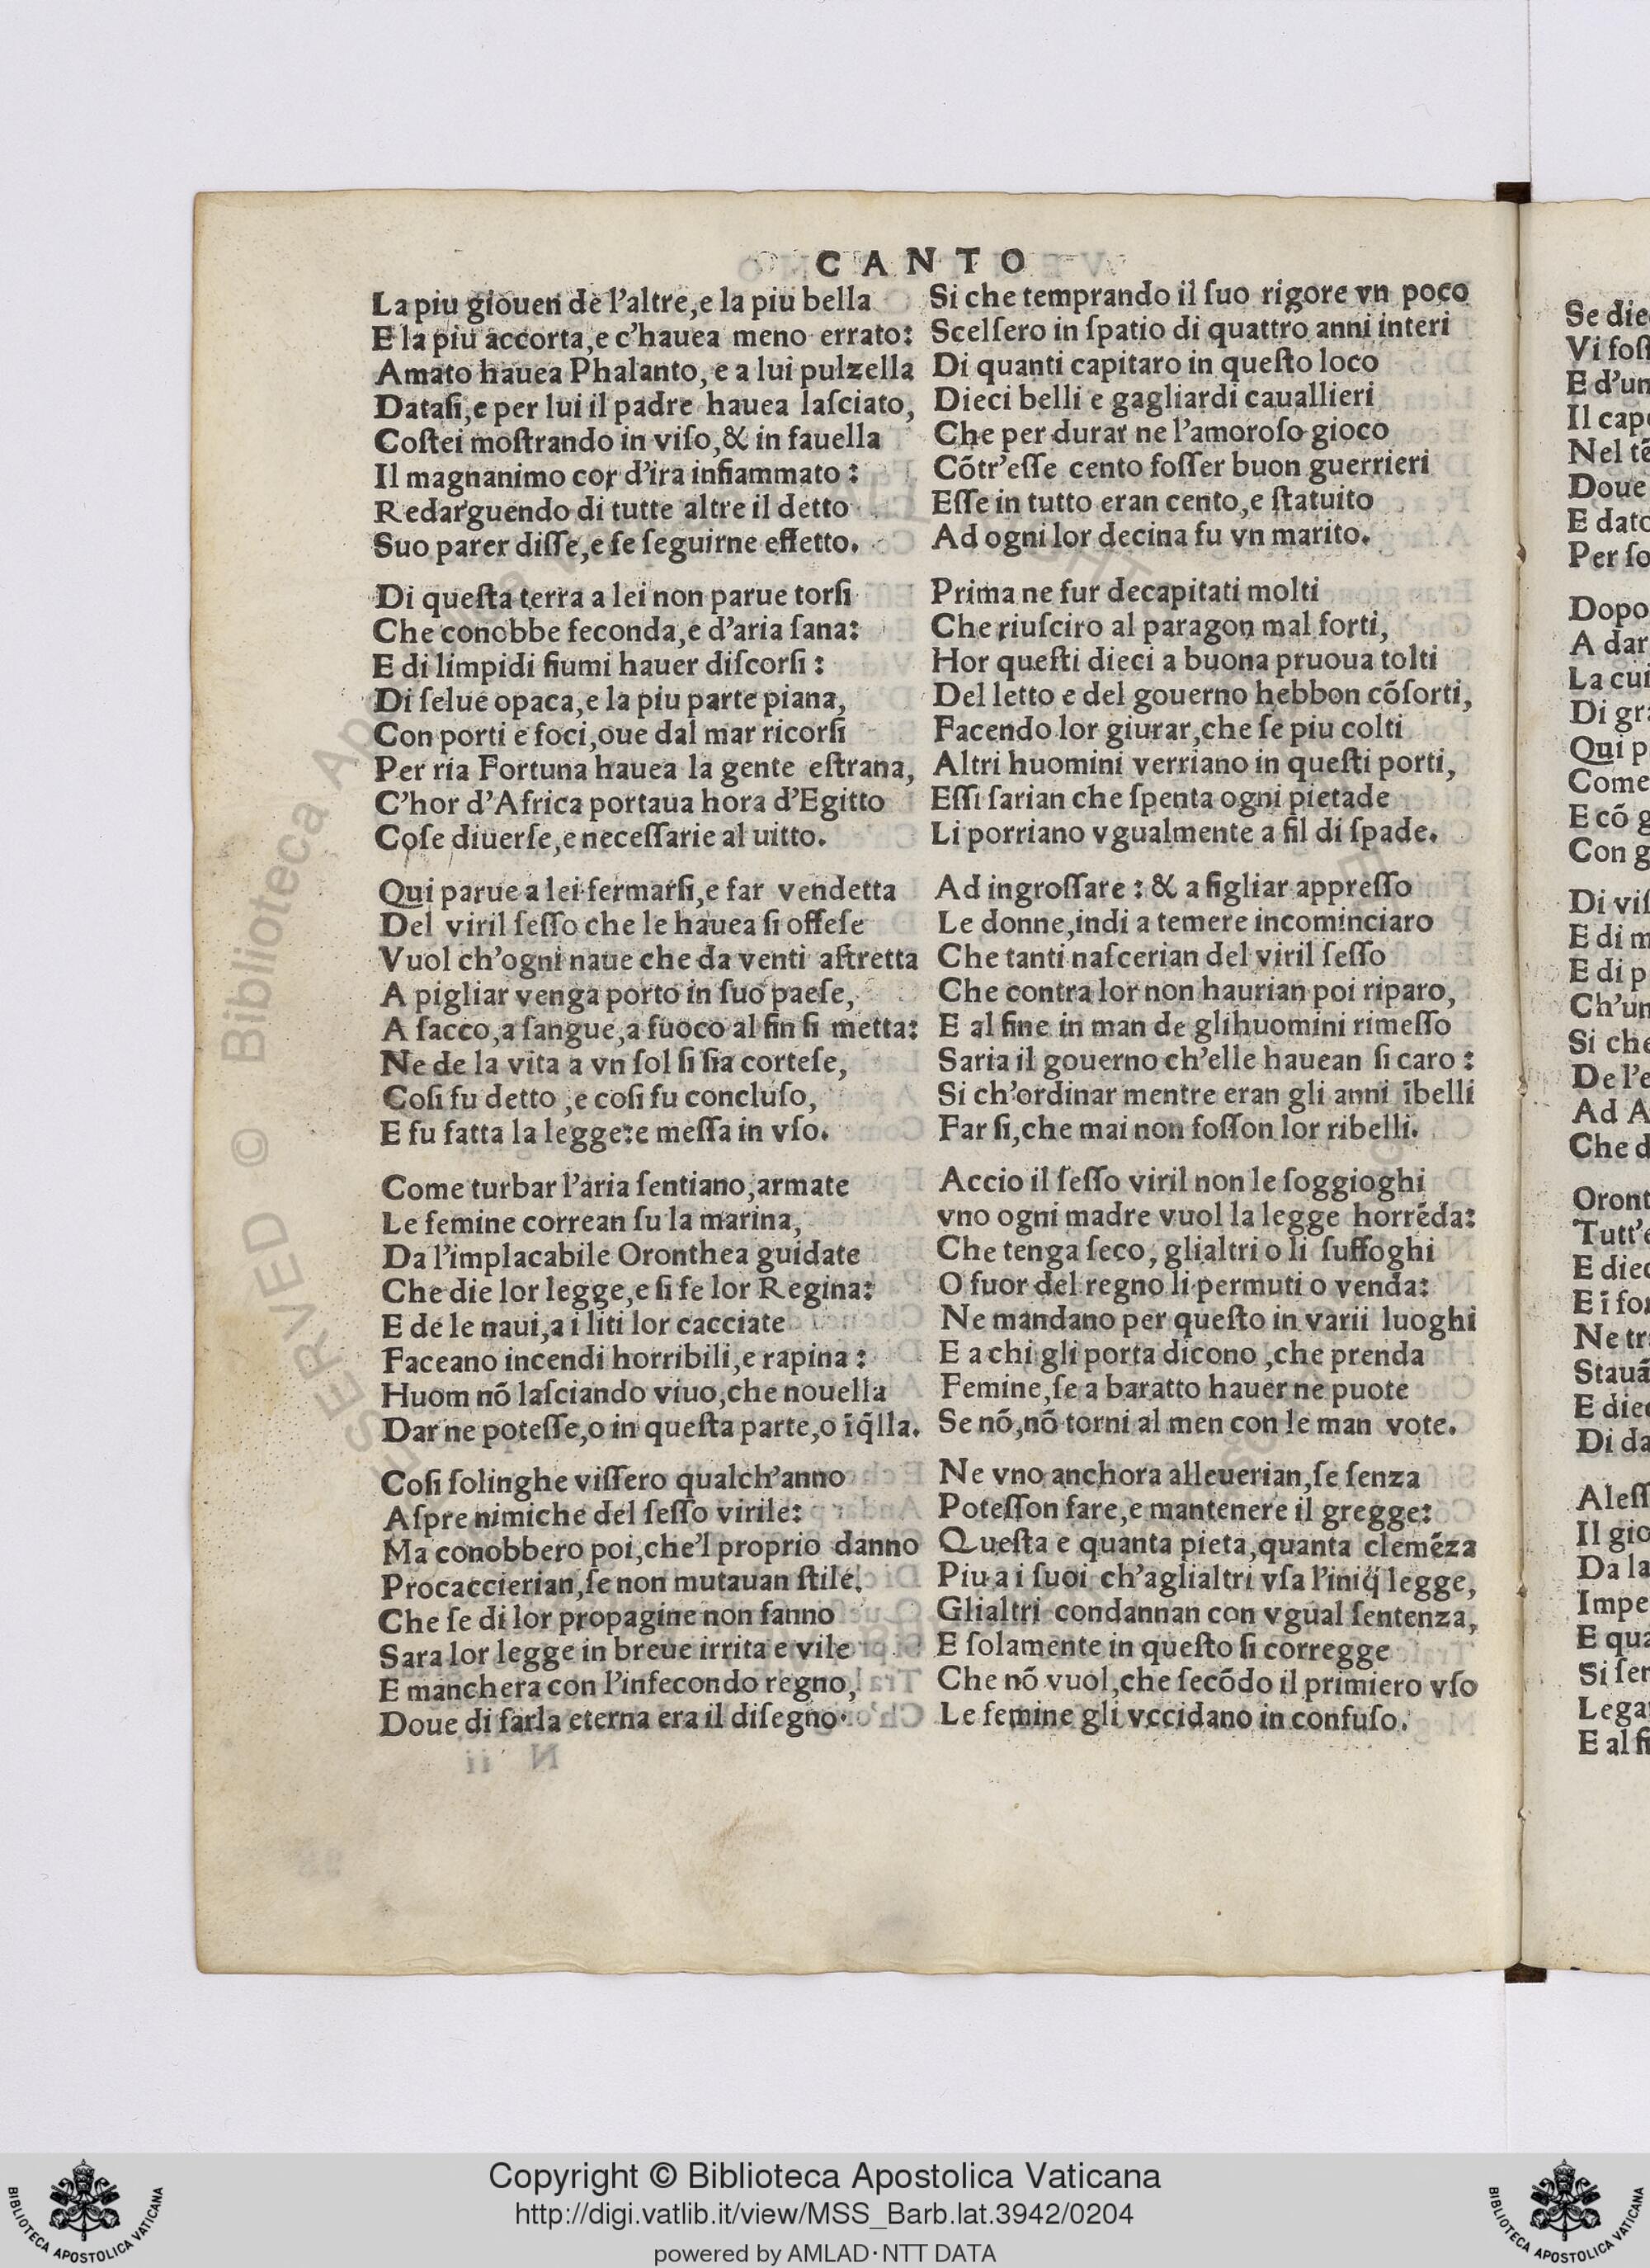 CANTO
La piu giouen de l'altre,e la piu bella
E la piu accorta,e c'hauea meno errato:
Amato hauea Phalanto, e a lui pulzella
Dataſi,e per lui il padre hauea laſciato,
Coſtei moſtrando in viſo,& in fauella
Il magnanimo cor d'ira infiammato:
Redarguendo di tutte altre il detto
Suo parer diſſe,e fe ſeguirne effetto.
Di queſta terra a lei non parue torſi
Che conobbe feconda,e d'aria ſana:
E di limpidi fiumi hauer diſcorſi:
Di ſelue opaca,e la piu parte piana,
Con porti e foci,oue dal mar ricorſi
Per ria Fortuna hauea la gente eſtrana,
C'hor d'Africa portaua hora d'Egitto
Coſe diuerſe,e neceſſarie al uitto.
Qui parue a lei fermarſi,e far vendetta
Del viril ſeſſo che le hauea ſi offeſe
Vuol ch'ogni naue che da venti aſtretta
A pigliar venga porto in ſuo paeſe,
A ſacco,a ſangue,a fuoco al fin ſi metta:
Ne de la vita a vn ſol ſi ſia corteſe,
Coſi fu detto,e coſi fu concluſo,
E fu fatta la legge:e meſſa in vſo.
Come turbar l'aria ſentiano,armate
Le femine correan ſu la marina,
Da l'implacabile Oronthea guidate
Che die lor legge,e ſi fe lor Regina:
E de le naui,a i liti lor cacciate
Faceano incendi horribili,e rapina:
Huom nō laſciando viuo,che nouella
Dar ne poteſſe,o in queſta parte,o ī q̄lla.
Coſi ſolinghe viſſero qualch'anno
Aſpre nimiche del ſeſſo virile:
Ma conobbero poi,che'l proprio danno
Procaccierian,ſe non mutauan ſtile.
Che ſe di lor propagine non fanno
Sara lor legge in breue irrita e vile
E manchera con l'infecondo regno,
Doue di farla eterna era il diſegno.
Si che temprando il ſuo rigore vn poco
Scelſero in ſpatio di quattro anni interi
Di quanti capitaro in queſto loco
Dieci belli e gagliardi cauallieri
Che per durar ne l'amoroſo gioco
Cōtr'eſſe cento foſſer buon guerrieri
Eſſe in tutto eran cento,e ſtatuito
Ad ogni lor decina fu vn marito.
Prima ne fur decapitati molti
Che riuſciro al paragon mal forti,
Hor queſti dieci a buona pruoua tolti
Del letto e del gouerno hebbon cōſorti,
Facendo lor giurar,che ſe piu colti
Altri huomini verriano in queſti porti,
Eſſi ſarian che ſpenta ogni pietade
Li porriano vgualmente a fil di ſpade.
Ad ingroſſare: & a figliar appreſſo
Le donne,indi a temere incominciaro
Che tanti naſcerian del viril ſeſſo
Che contra lor non haurian poi riparo,
E al fine in man de glihuomini rimeſſo
Saria il gouerno ch'elle hauean ſi caro:
Si ch'ordinar mentre eran gli anni ībelli
Far ſi,che mai non foſſon lor ribelli.
Accio il ſeſſo viril non le ſoggioghi
vno ogni madre vuol la legge horrēda:
Che tenga ſeco, glialtri o li ſuffoghi
O fuor del regno li permuti o venda:
Ne mandano per queſto in varii luoghi
E a chi gli porta dicono,che prenda
Femine,ſe a baratto hauer ne puote
Se nō,nō torni al men con le man vote.
Ne vno anchora alleuerian,ſe ſenza
Poteſſon fare,e mantenere il gregge:
Queſta e quanta pieta,quanta clemēza
Piu a i ſuoi ch'aglialtri vſa l'iniq̄ legge,
Glialtri condannan con vgual ſentenza,
E ſolamente in queſto ſi corregge
Che nō vuol,che ſecōdo il primiero vſo
Le femine gli vccidano in confuſo.
Se die
Vi foſſ
E d'un
Il cap
Nel tē
Doue
E dato
Per ſo
Dopo
A dar
La cui
Di gr
Qui p
Come
E cō g
Con g
Di viſ
E di m
E di p
Ch'un
Si che
De l'e
Ad A
Che d
Oront
Tutt'e
E diec
E ī fo
Ne tr
Stauā
E diec
Di da
Aleſſ
Il gio
Da la
Impe
E qua
Si fer
Lega
E al fi
Copyright © Biblioteca Apostolica Vaticana
http://digi.vatlib.it/view/MSS_Barb.lat.3942/0204
powered by AMLAD·NTT DATA
BIBLIOTECA APOSTOLICA VATICANA
BIBLIOTECA APOSTOLICA VATICANA